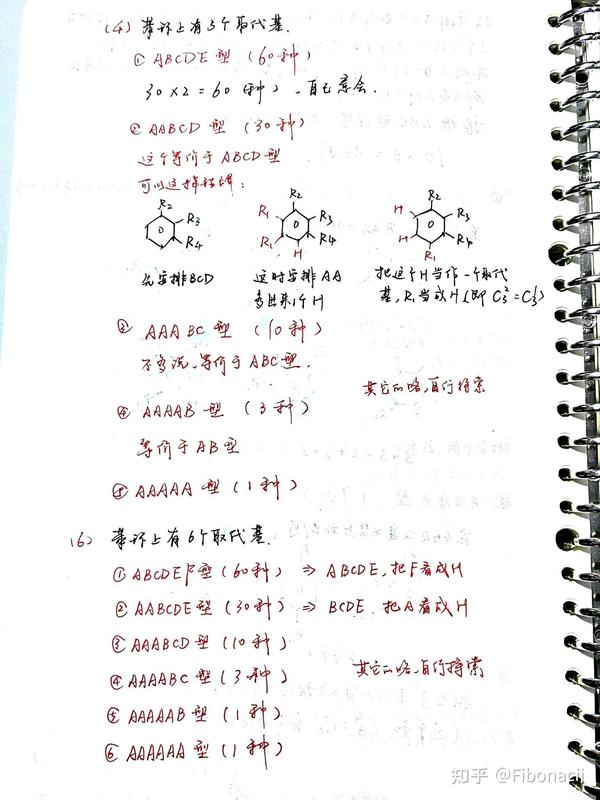 (4) 苯环上有5个取代基.
① ABCDE型 (60种)
30×2=60(种), 自己意会.
② AABCD型 (30种)
这个等价于ABCD型
可以这样理解:
R2 R3 R4
R1 R2 R3 R4 R1 H
H R2 R3 R4 R1 H
先安排BCD
这时安排AA
多出来1个H
把这个H当作一个取代
基, R1当成H(即C₃²=C₃¹)
③ AAABC型 (10种)
不多说, 等价于ABC型.
其它的略, 自行探索
④ AAAAB型 (3种)
等价于AB型
⑤ AAAAA型 (1种)
(6) 苯环上有6个取代基.
① ABCDEF型 (60种) ⇒ ABCDE, 把F看成H
② AABCDE型 (30种) ⇒ BCDE. 把A看成H
③ AAABCD型 (10种)
④ AAAABC型 (3种)
其它的略, 自行探索
⑤ AAAAAB型 (1种)
⑥ AAAAAA型 (1种)
知乎 @Fibonacii